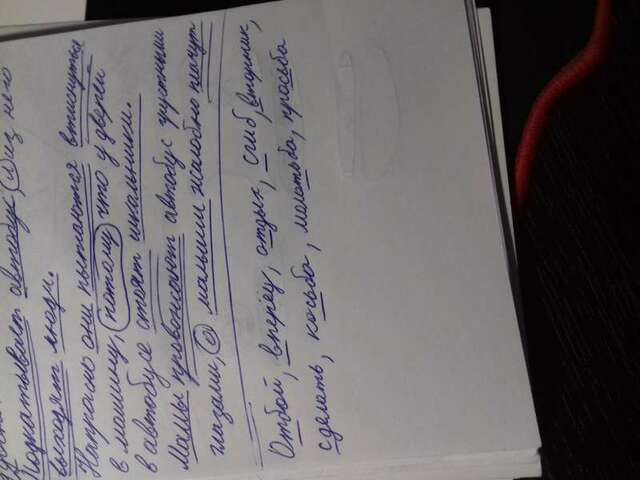 Подкатывает автобус, и из него
выходят люди.
Напрасно они пытаются втиснуться
в машину, потому что у дверей
в автобусе стоят школьники.
Мамы провожают автобус грустными
глазами, а малыши жалобно плачут
Отбой, вперёд, отдых, сгиб, вторник,
сделать, косьба, молотьба, просьба